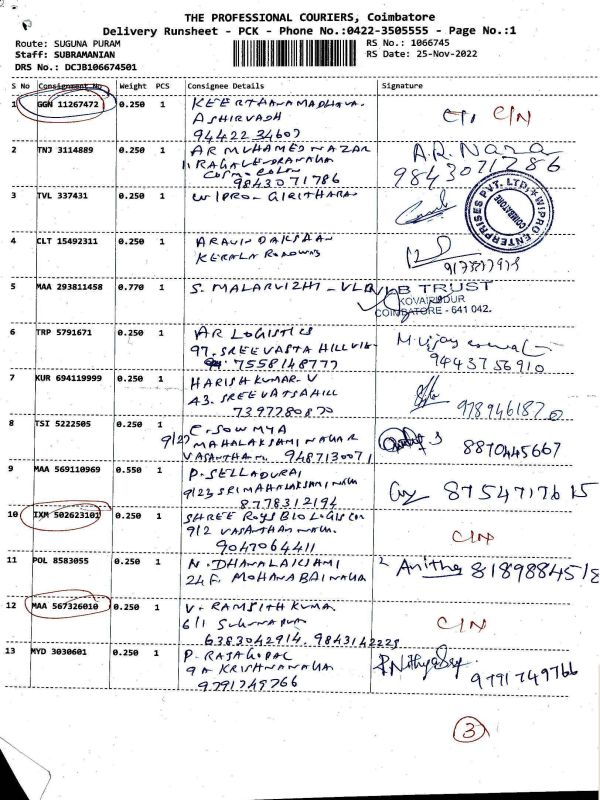 THE PROFESSIONAL COURIERS, Coimbatore
Delivery Runsheet - PCK - Phone No.:0422-3505555 - Page No.:1
Route: SUGUNA PURAM RS No.: 1066745
Staff: SUBRAMANIAN RS Date: 25-Nov-2022
DRS No.: DCJB106674501
S No Consignment No Weight PCS Consignee Details Signature
1 GGN 11267472 0.250 1 KEERTHANAMADHAVA.
ASHIRVADH
94422 34607 C/N
2 TNJ 3114889 0.250 1 AR MUHAMED NAZAR A.R. Naza
RAGAVENDRANAGA
9843071786 9843071786
3 TVL 337431 0.250 1 WIPRO - GIRITHARA
WIPRO ENTERPRISES PVT. LTD,
COIMBATORE
4 CLT 15492311 0.250 1
KERALA ROADWAYS
5 MAA 293811458 0.770 1 S. MALARVIZHI - VLB VLB TRUST
KOVAIPUDUR
COIMBATORE - 641 042.
6 TRP 5791671 0.250 1 AR LOGISTICS
97. SREEVATSA HILLVIEW
7558148777 9443756910
7 KUR 694119999 0.250 1 HARISH KUMAR. V
43. SREEVATSAHILL
7397780870
8 TSI 5222505 0.250 1 C. SOWMYA
9/27 MAHALAKSHMI NAGAR 8870445667
VASANTHAM. 9487130071
9 MAA 569110969 0.550 1 P. SELLADURAI
9/23 SRIMAHALAKSHMI NAGA 8754717615
8778312194
10 IXM 502623101 0.250 1 SHREE ROYS BIOLOGIS
9/2 VASANTHAM NAGA. C/N
9047064411
11 POL 8583055 0.250 1 N. DHANALAKSHMI
24F. MOHANABAINAGA Anitha 8189884518
12 MAA 567326010 0.250 1 V. RAMJITH KUMA
6/1 SUGUNAPUR C/N
6383042914. 9843142225
13 MYD 3030601 0.250 1 P. RAJAGOPAL
9A KRISHNANAGA 9791749766
9791749766
3